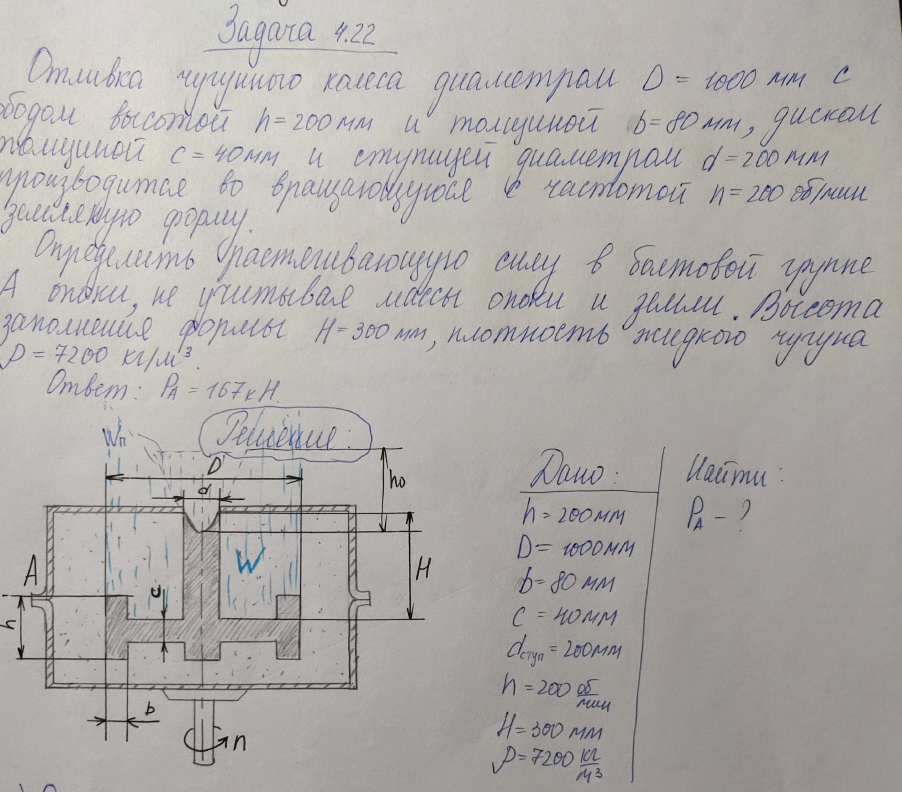 Задача 4.22
Отливка чугунного колеса диаметром D = 1000 мм с
ободом высотой h = 200 мм и толщиной b = 80 мм, диском
толщиной c = 40 мм и ступицей диаметром d = 200 мм
производится во вращающуюся с частотой n = 200 об/мин
земляную форму.
Определить растягивающую силу в болтовой группе
А опоки, не учитывая массы опоки и земли. Высота
заполнения формы H = 300 мм, плотность жидкого чугуна
ρ = 7200 кг/м³.
Ответ: P_A = 167 кН.
Решение:
Wп
D
d
h₀
W
H
A
c
h
b
n
Дано:
h = 200 мм
D = 1000 мм
b = 80 мм
c = 40 мм
d ступ = 200 мм
n = 200 об/мин
H = 300 мм
ρ = 7200 кг/м³
Найти:
P_A - ?